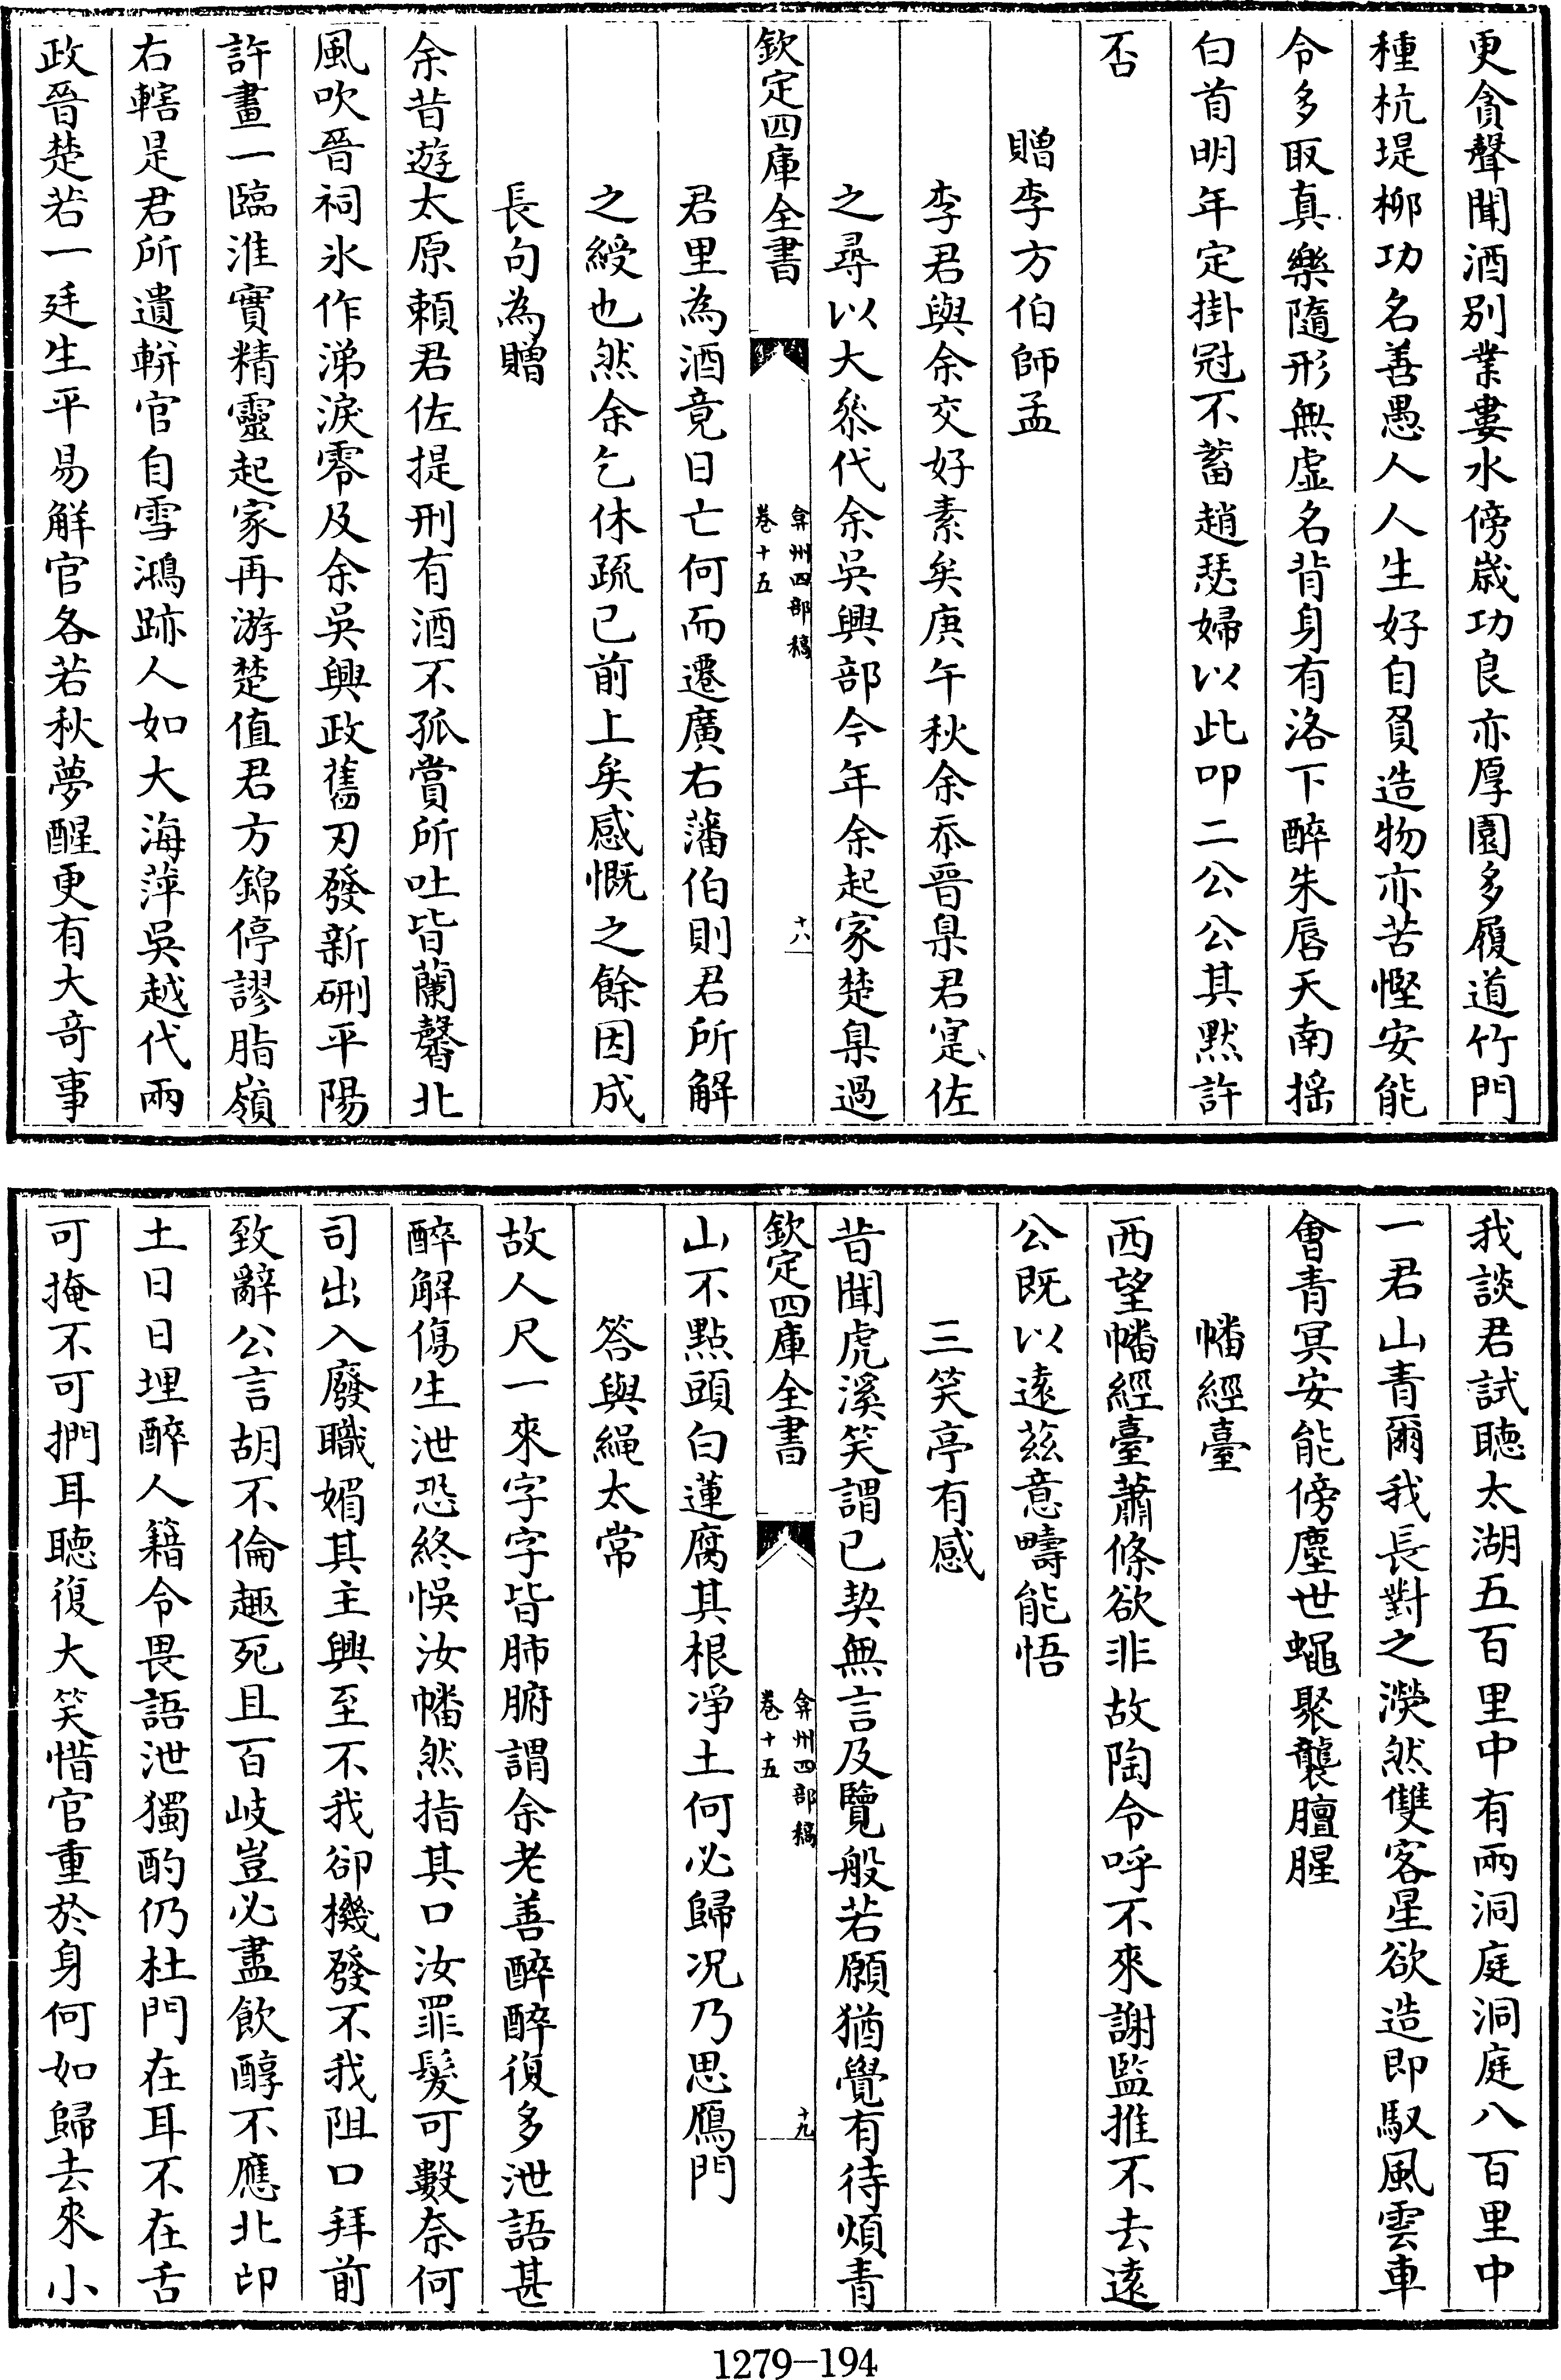 更貪聲聞酒别業婁水傍歲功良亦厚園多履道竹門
種杭堤柳功名善愚人人生好自負造物亦苦慳安能
令多取真樂隨形無虚名背身有洛下醉朱唇天南揺
白首明年定掛冠不蓄趙瑟婦以此叩二公公其黙許
否
贈李方伯師孟
李君與余交好素矣庚午秋余忝晉臬君寔佐
之尋以大叅代余吳興部今年余起家楚臬過
欽定四庫全書
弇州四部稿
卷十五
十八
君里為酒竟日亡何而遷廣右藩伯則君所解
之綬也然余乞休疏已前上矣感慨之餘因成
長句為贈
余昔遊太原頼君佐提刑有酒不孤賞所吐皆蘭馨北
風吹晉祠氷作涕淚零及余吳興政舊刃發新硎平陽
許畫一臨淮實精靈起家再游楚值君方錦停謬脂嶺
右轄是君所遺軿官自雪鴻跡人如大海萍吳越代兩
政晉楚若一廷生平易解官各若秋夢醒更有大竒事
我談君試聽太湖五百里中有兩洞庭洞庭八百里中
一君山青爾我長對之濙然雙客星欲造即馭風雲車
會青冥安能傍塵世蠅聚襲膻腥
幡經臺
西望幡經臺蕭條欲非故陶令呼不來謝監推不去遠
公既以遠兹意疇能悟
三笑亭有感
昔聞虎溪笑謂已契無言及覽般若願猶覺有待煩青
欽定四庫全書
弇州四部稿
卷十五
十九
山不點頭白蓮腐其根凈土何必歸況乃思鴈門
答與繩太常
故人尺一來字字皆肺腑謂余老善醉醉復多泄語甚
醉解傷生泄恐終悞汝幡然指其口汝罪髮可數奈何
司出入廢職媚其主興至不我卻機發不我阻口拜前
致辭公言胡不倫趣死且百岐豈必盡飲醇不應北邙
土日日埋醉人籍令畏語泄獨酌仍杜門在耳不在舌
可掩不可捫耳聽復大笑惜官重於身何如歸去來小
1279-194